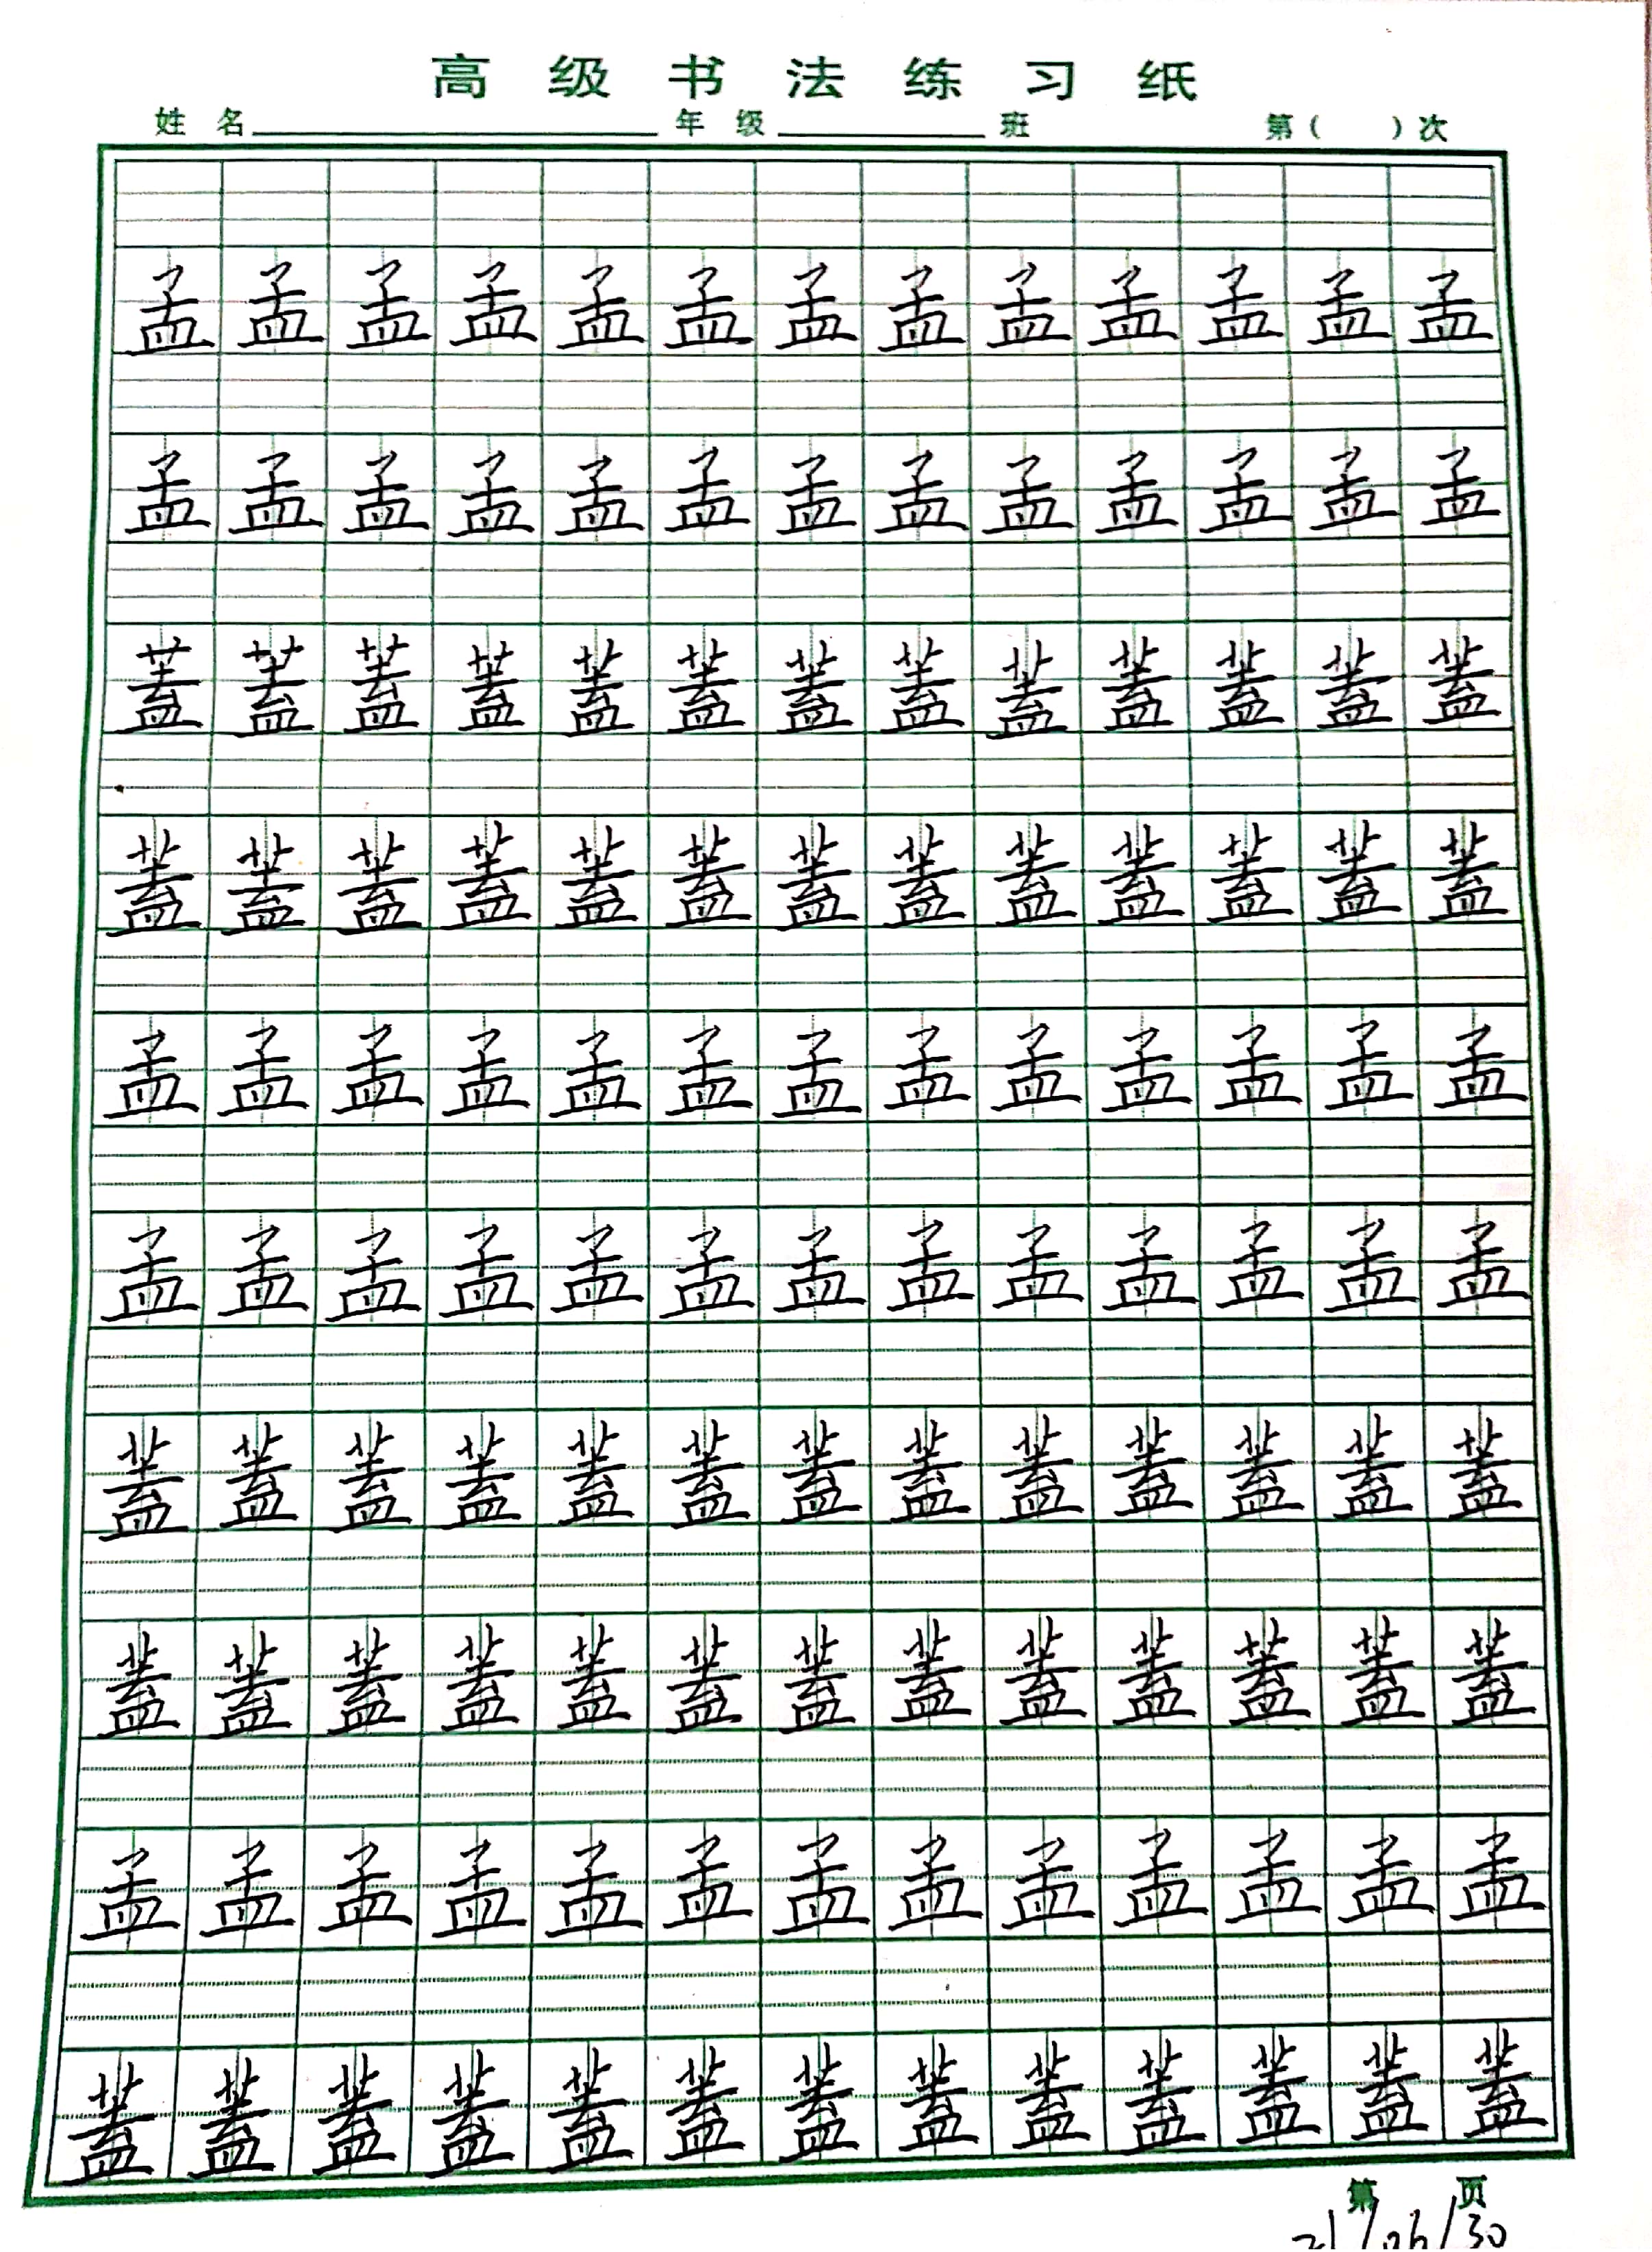 高级书法练习纸
姓名 年级 班 第( )次
孟孟孟孟孟孟孟孟孟孟孟孟孟
孟孟孟孟孟孟孟孟孟孟孟孟孟
蓋蓋蓋蓋蓋蓋蓋蓋蓋蓋蓋蓋蓋
蓋蓋蓋蓋蓋蓋蓋蓋蓋蓋蓋蓋蓋
孟孟孟孟孟孟孟孟孟孟孟孟孟
孟孟孟孟孟孟孟孟孟孟孟孟孟
蓋蓋蓋蓋蓋蓋蓋蓋蓋蓋蓋蓋蓋
蓋蓋蓋蓋蓋蓋蓋蓋蓋蓋蓋蓋蓋
孟孟孟孟孟孟孟孟孟孟孟孟孟
蓋蓋蓋蓋蓋蓋蓋蓋蓋蓋蓋蓋蓋
第 页
21/06/30